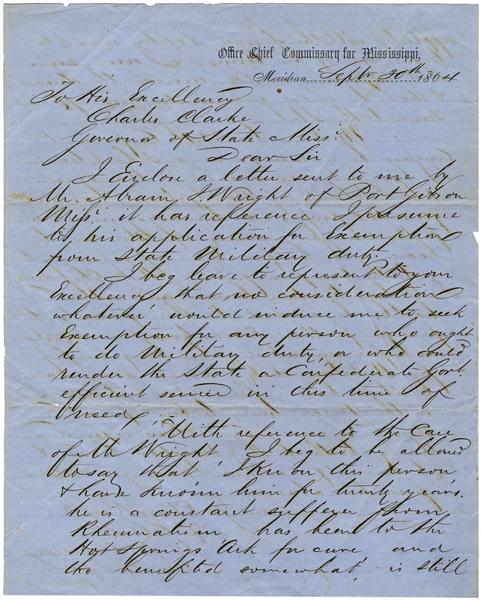 Office Chief Commissary for Mississippi,
Meridian, Septr 20th 1864
To His Excellency
Charles Clarke
Governor of State Missi
Dear Sir
I Enclose a letter sent to me by
Mr. Abram S. Wright of Port Gibson
Missi it has reference I presume
to his application for Exemption
from State Military duty.
I beg leave to represent to your
Excellency that no consideration
whatever would induce me to seek
Exemption for any person who ought
to do Military duty, or who could
render the State or Confederate Govt
efficient service in this time of
need.
With reference to the Case
of Mr Wright I beg to be allowed
to say that I know this person
& have known him for twenty years.
he is a constant sufferer from
Rheumatism has been to the
Hot Springs Ark for cure and
tho benefited somewhat, is still